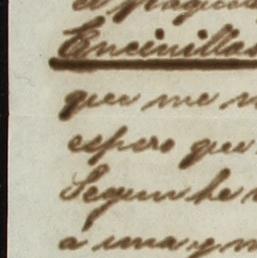 el
Encinillas
que me
espero que
Segun he
á una y m